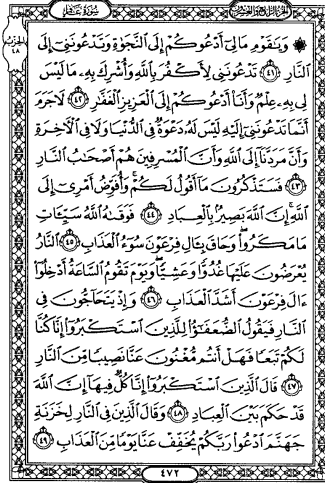 سُورَةُ غَافِر
الجُزْءُ الرَّابِعُ وَالعِشْرُونَ
۞ وَيَٰقَوْمِ مَا لِىٓ أَدْعُوكُمْ إِلَى ٱلنَّجَوٰةِ وَتَدْعُونَنِىٓ إِلَى
ٱلنَّارِ ٤١ تَدْعُونَنِى لِأَكْفُرَ بِٱللَّهِ وَأُشْرِكَ بِهِۦ مَا لَيْسَ
لِى بِهِۦ عِلْمٌ وَأَنَا۠ أَدْعُوكُمْ إِلَى ٱلْعَزِيزِ ٱلْغَفَّٰرِ ٤٢ لَا جَرَمَ
أَنَّمَا تَدْعُونَنِىٓ إِلَيْهِ لَيْسَ لَهُۥ دَعْوَةٌ فِى ٱلدُّنْيَا وَلَا فِى ٱلْءَاخِرَةِ
وَأَنَّ مَرَدَّنَآ إِلَى ٱللَّهِ وَأَنَّ ٱلْمُسْرِفِينَ هُمْ أَصْحَٰبُ ٱلنَّارِ
٤٣ فَسَتَذْكُرُونَ مَآ أَقُولُ لَكُمْ ۚ وَأُفَوِّضُ أَمْرِىٓ إِلَى
ٱللَّهِ ۚ إِنَّ ٱللَّهَ بَصِيرٌۢ بِٱلْعِبَادِ ٤٤ فَوَقَىٰهُ ٱللَّهُ سَيِّـَٔاتِ
مَا مَكَرُوا۟ ۖ وَحَاقَ بِـَٔالِ فِرْعَوْنَ سُوٓءُ ٱلْعَذَابِ ٤٥ ٱلنَّارُ
يُعْرَضُونَ عَلَيْهَا غُدُوًّا وَعَشِيًّا ۖ وَيَوْمَ تَقُومُ ٱلسَّاعَةُ أَدْخِلُوٓا۟
ءَالَ فِرْعَوْنَ أَشَدَّ ٱلْعَذَابِ ٤٦ وَإِذْ يَتَحَآجُّونَ فِى
ٱلنَّارِ فَيَقُولُ ٱلضُّعَفَٰٓؤُا۟ لِلَّذِينَ ٱسْتَكْبَرُوٓا۟ إِنَّا كُنَّا
لَكُمْ تَبَعًا فَهَلْ أَنتُم مُّغْنُونَ عَنَّا نَصِيبًا مِّنَ ٱلنَّارِ
٤٧ قَالَ ٱلَّذِينَ ٱسْتَكْبَرُوٓا۟ إِنَّا كُلٌّ فِيهَآ إِنَّ ٱللَّهَ
قَدْ حَكَمَ بَيْنَ ٱلْعِبَادِ ٤٨ وَقَالَ ٱلَّذِينَ فِى ٱلنَّارِ لِخَزَنَةِ
جَهَنَّمَ ٱدْعُوا۟ رَبَّكُمْ يُخَفِّفْ عَنَّا يَوْمًا مِّنَ ٱلْعَذَابِ ٤٩
٤٧٢